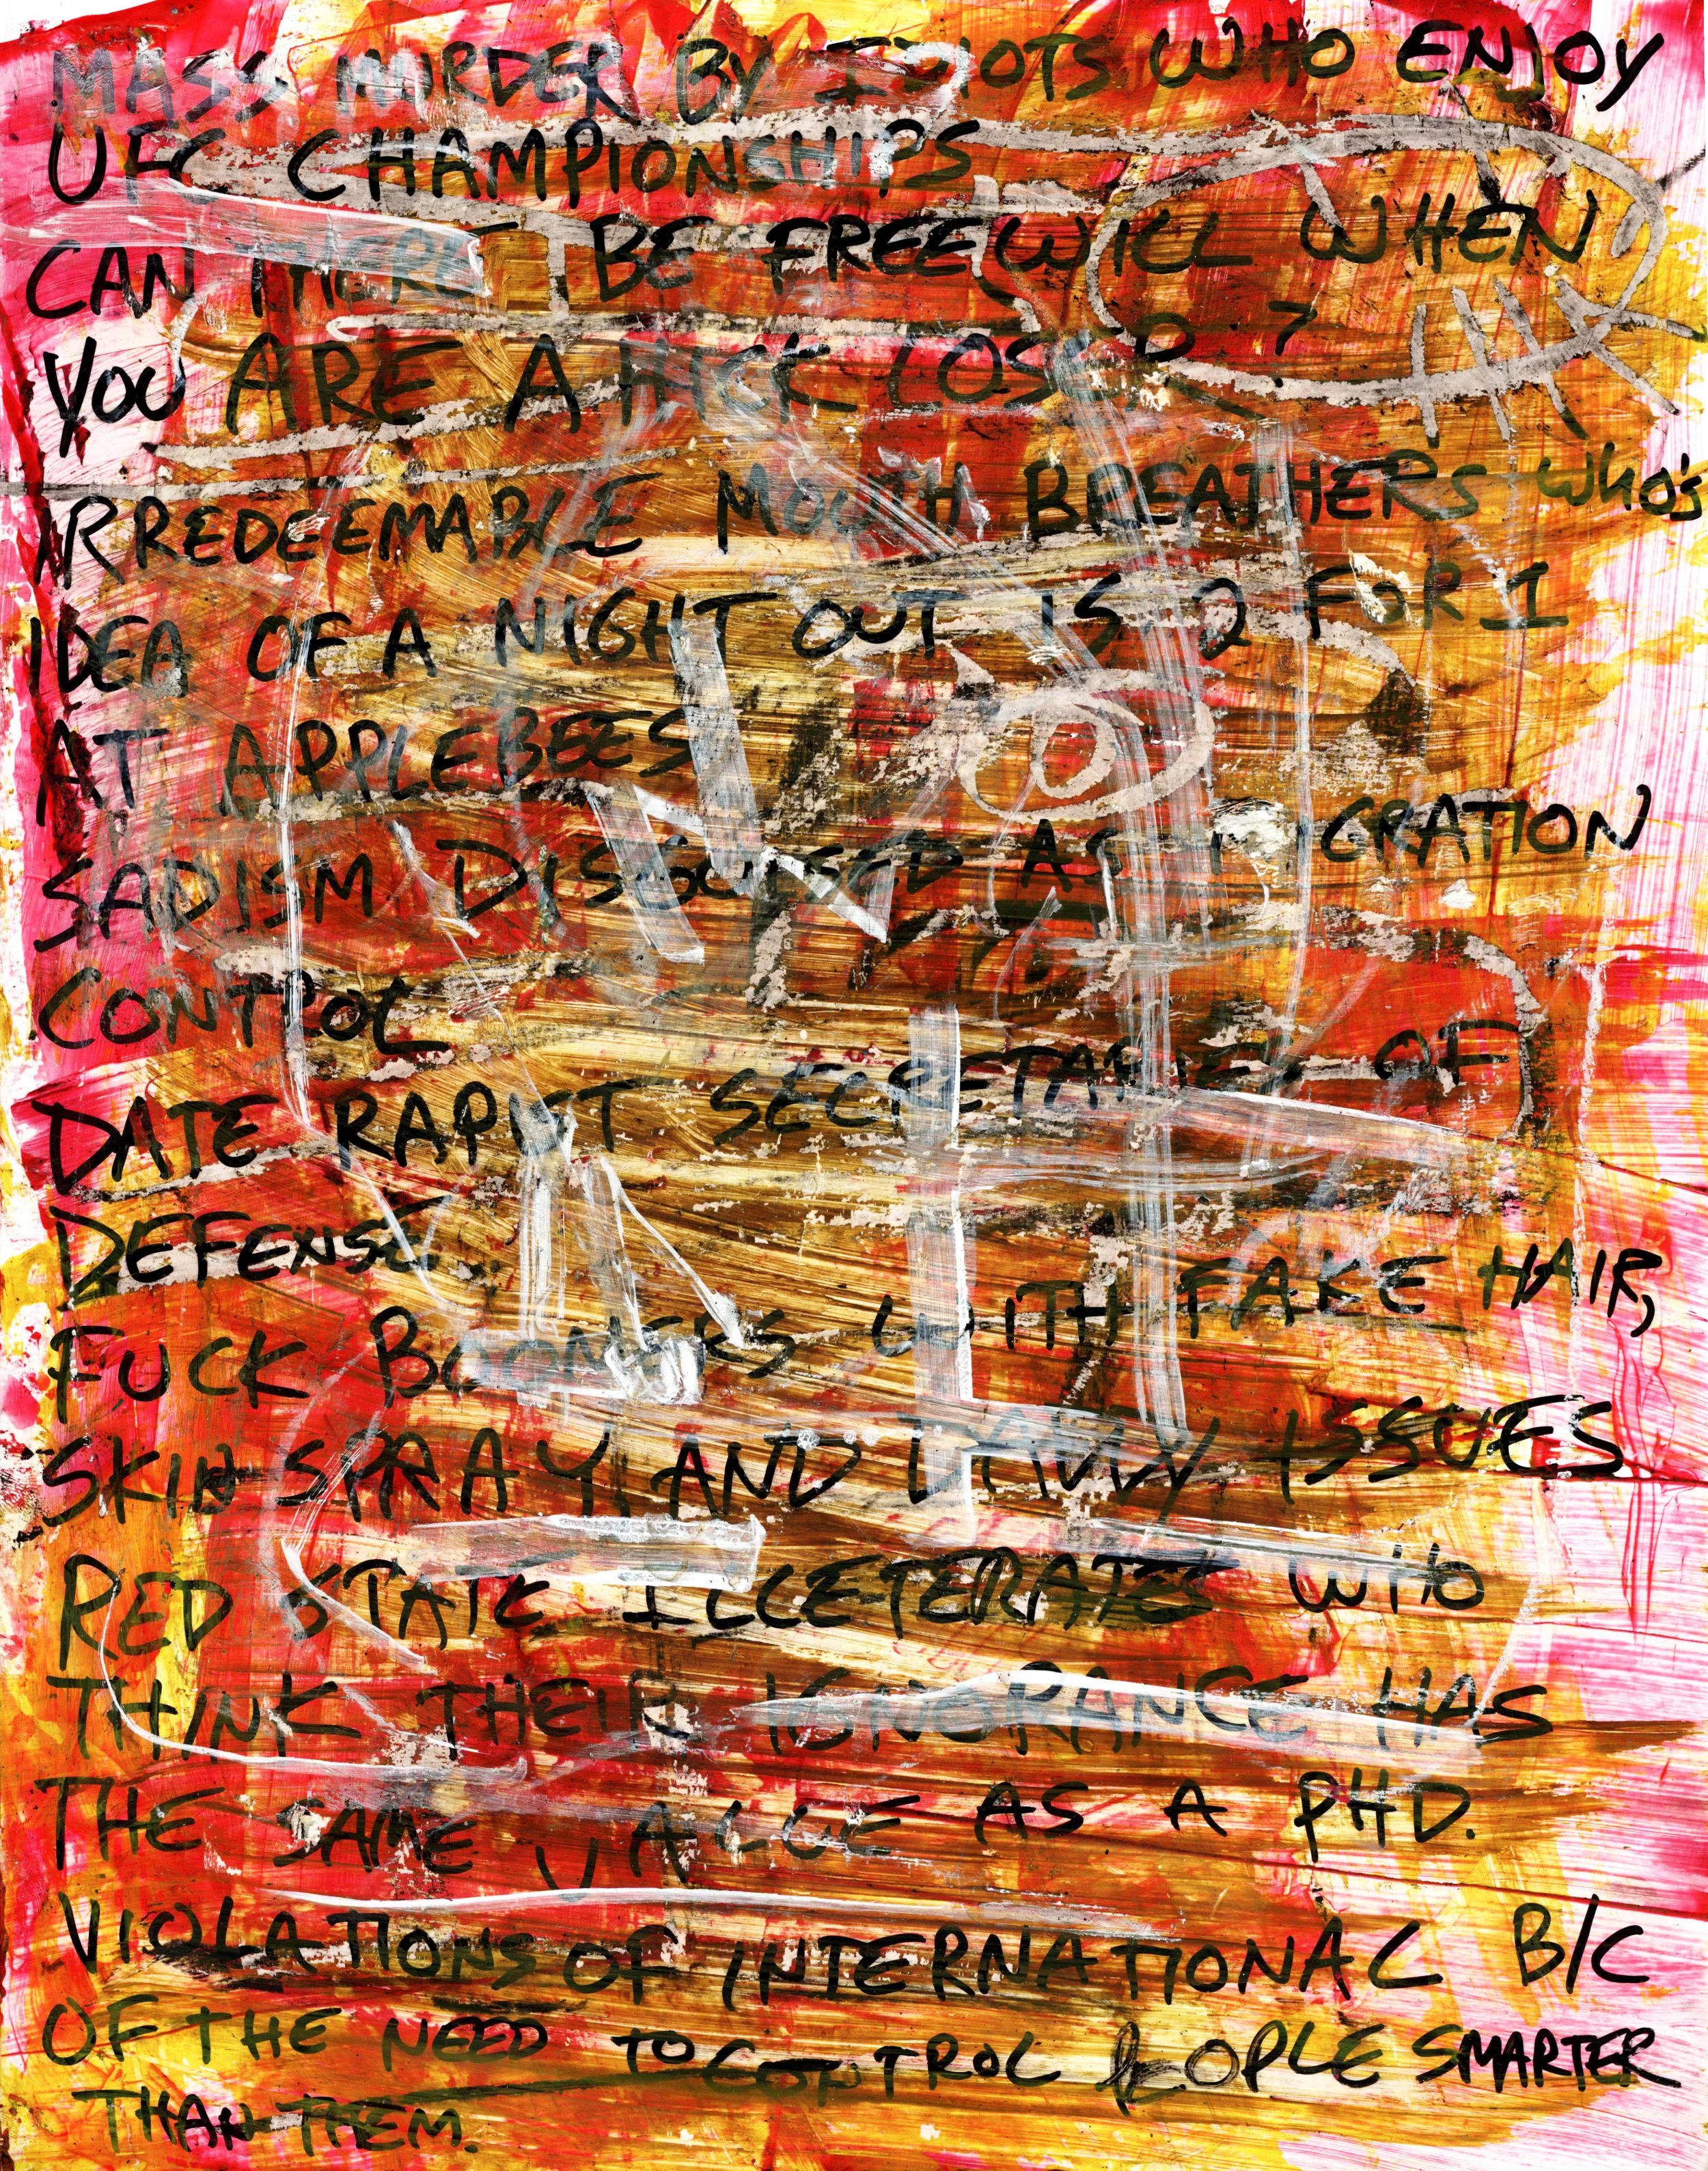 MASS MURDER BY IDIOTS WHO ENJOY
UFC CHAMPIONSHIPS
CAN THERE BE FREE WILL WHEN
YOU ARE A HICK LOSER ?
IRREDEEMABLE MOUTH BREATHERS WHO'S
IDEA OF A NIGHT OUT IS 2 FOR 1
AT APPLEBEES
SADISM DISGUISED AS IMIGRATION
CONTROL
DATE RAPIST SECRETARIES OF
DEFENSE.
FUCK BOOMERS WITH FAKE HAIR,
SKIN SPRAY AND DADDY ISSUES
RED STATE ILLETERATES WHO
THINK THEIR IGNORANCE HAS
THE SAME VALUE AS A PHD.
VIOLATIONS OF INTERNATIONAL B/C
OF THE NEED TO CONTROL PEOPLE SMARTER
THAN THEM.